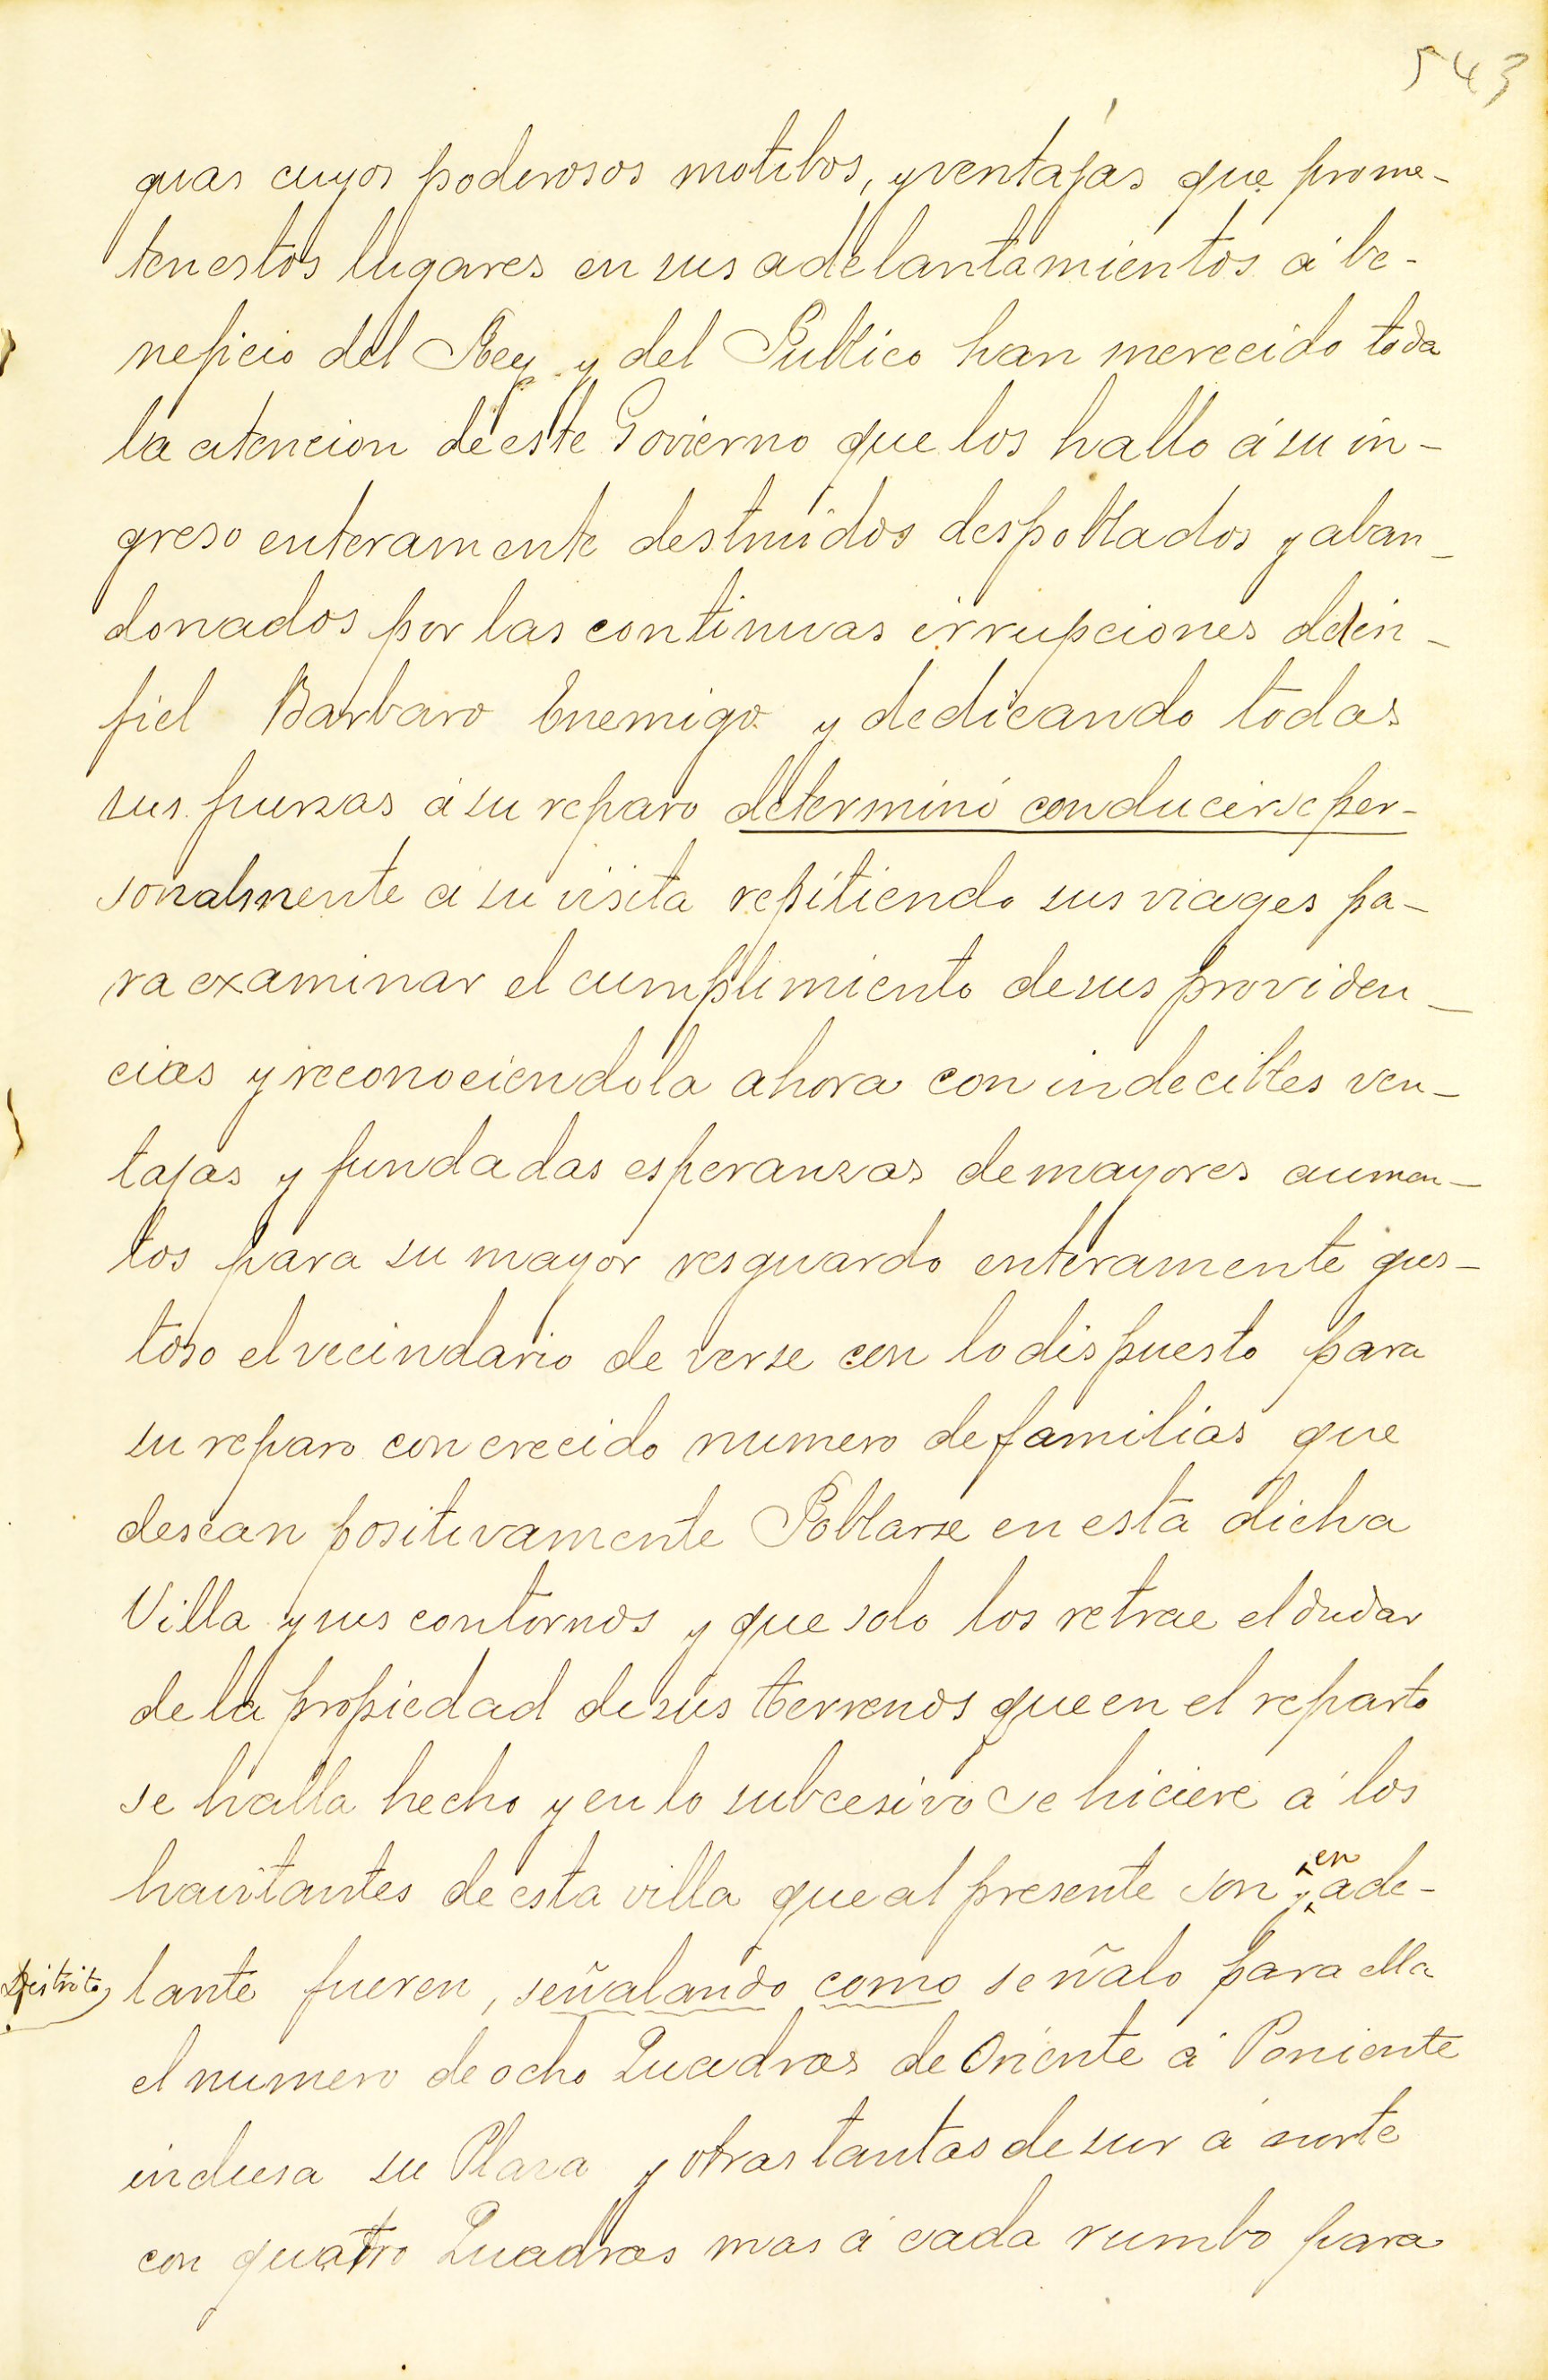 543
guas cuyos poderosos motibos, y ventajas que prome-
ten estos lugares en sus adelantamientos á be-
neficio del Rey y del Publico han merecido toda
la atencion de este Govierno que los hallo á su in-
greso enteramente destruidos despoblados y aban-
donados por las continuas irrupciones del in-
fiel Barbaro Enemigo y dedicando todas
sus fuerzas á su reparo determinó conducirse per-
sonalmente á su visita repitiendo sus viages pa-
ra examinar el cumplimiento de sus providen-
cias y reconociendola ahora con indecibles ven-
tajas y fundadas esperanzas de mayores aumen-
tos para su mayor resguardo enteramente gus-
toso el vecindario de verse con lo dispuesto para
su reparo con crecido numero de familias que
desean positivamente Poblarse en esta dicha
Villa y sus contornos y que solo los retrae el dudar
de la propiedad de sus terrenos que en el reparto
se halla hecho y en lo subcesivo se hiciere á los
havitantes de esta villa que al presente son y en ade-
Distrito, lante fueren, señalando como señalo para ella
el numero de ocho Quadras de Oriente á Poniente
inclusa su Plaza y otras tantas de sur á norte
con quatro Quadras mas á cada rumbo para